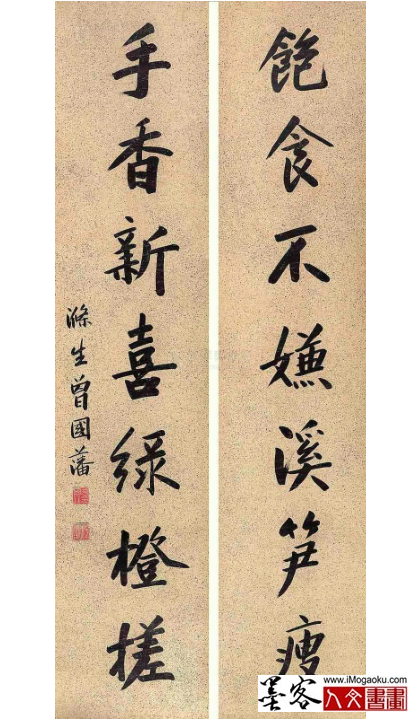 飽食不嫌溪笋瘦
手香新喜綠橙搓
滌生曾國藩
墨客
www.iMogaoku.com
人文書畫